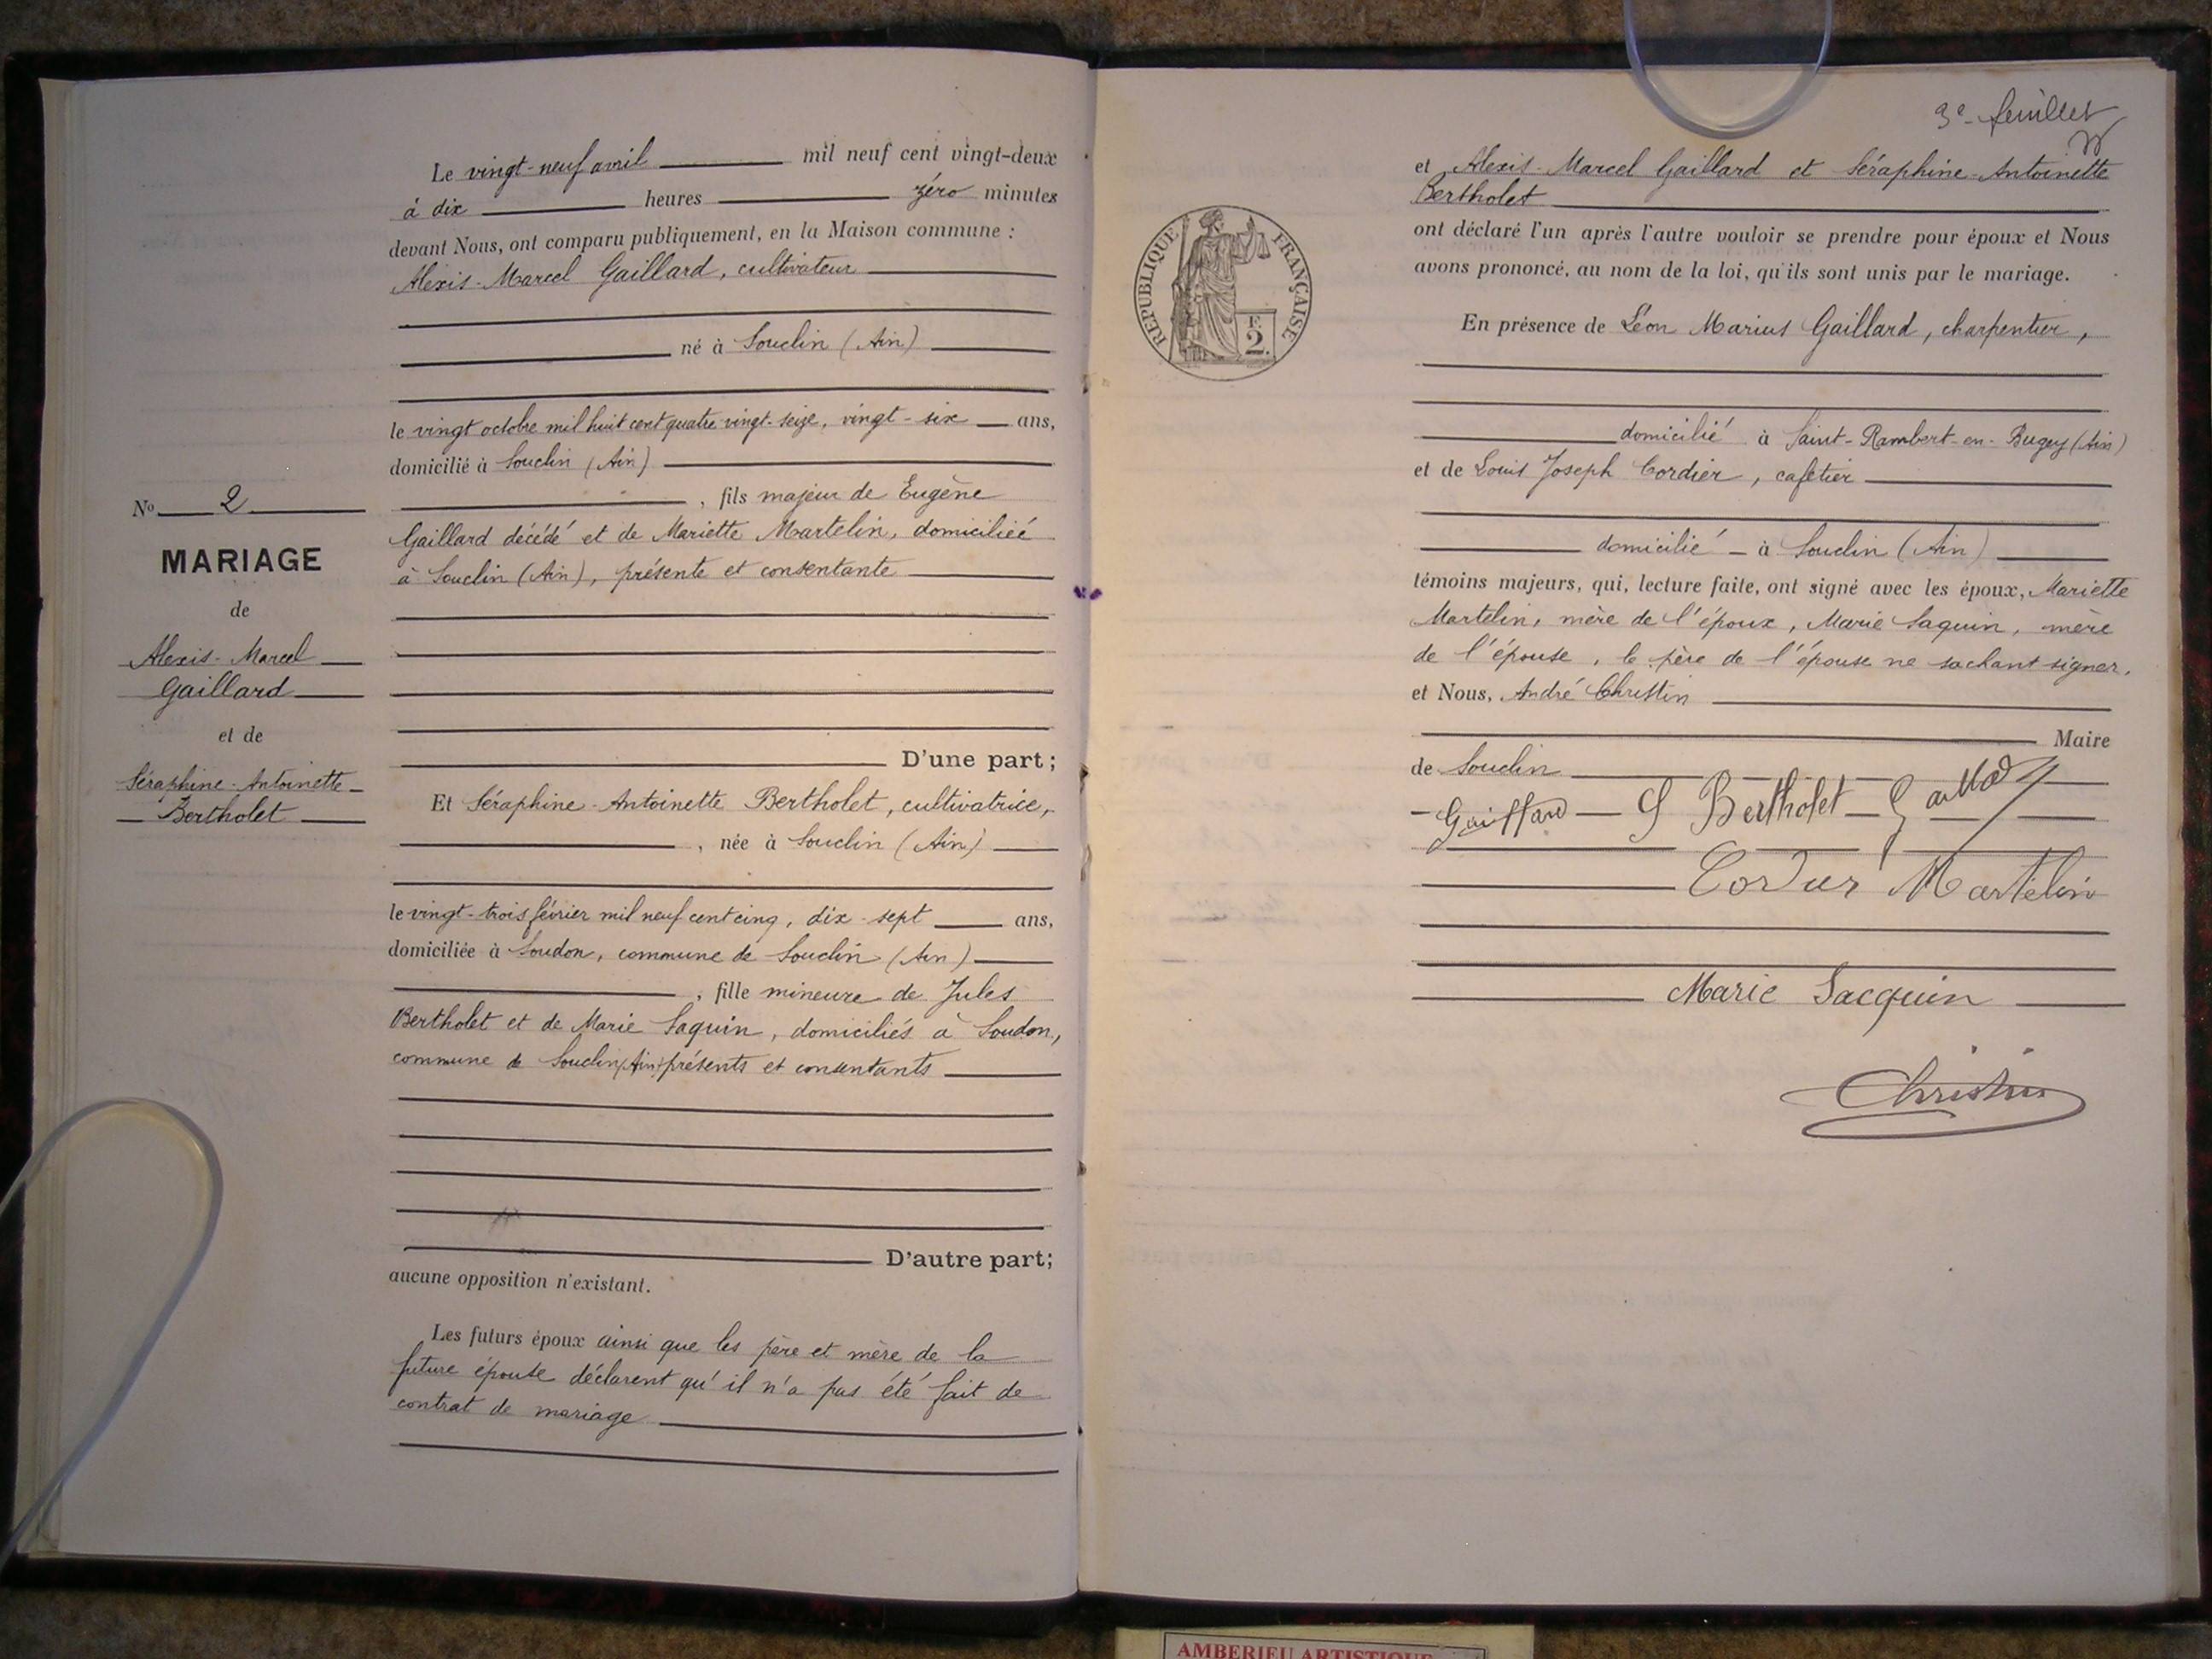 Le vingt-neuf avril mil neuf cent vingt-deux
à dix heures zéro minutes
devant Nous, ont comparu publiquement, en la Maison commune :
Alexis-Marcel Gaillard, cultivateur
né à Souclin (Ain)
le vingt octobre mil huit cent quatre vingt-seize, vingt-six ans,
domicilié à Souclin (Ain)
, fils majeur de Eugène
Gaillard décédé et de Mariette Martelin, domiciliée
à Souclin (Ain), présente et consentante
No 2
MARIAGE
de
Alexis-Marcel
Gaillard
et de
Séraphine-Antoinette
Bertholet
D'une part;
Et Séraphine-Antoinette Bertholet, cultivatrice,
, née à Souclin (Ain)
le vingt-trois février mil neuf cent cinq, dix-sept ans,
domiciliée à Soudon, commune de Souclin (Ain)
, fille mineure de Jules
Bertholet et de Marie Saquin, domiciliés à Soudon,
commune de Souclin (Ain) présents et consentants
D'autre part;
aucune opposition n'existant.
Les futurs époux ainsi que les père et mère de la
future épouse déclarent qu'il n'a pas été fait de
contrat de mariage
3e feuillet
RÉPUBLIQUE FRANÇAISE
F.
2.
et Alexis-Marcel Gaillard et Séraphine-Antoinette
Bertholet
ont déclaré l'un après l'autre vouloir se prendre pour époux et Nous
avons prononcé, au nom de la loi, qu'ils sont unis par le mariage.
En présence de Léon Marius Gaillard, charpentier,
domicilié à Saint-Rambert-en-Bugey (Ain)
et de Louis Joseph Cordier, cafetier
domicilié à Souclin (Ain)
témoins majeurs, qui, lecture faite, ont signé avec les époux, Mariette
Martelin, mère de l'époux, Marie Saquin, mère
de l'épouse, le père de l'épouse ne sachant signer,
et Nous, André Christin
Maire
de Souclin
Gaillard S Bertholet Gaillard
Cordier Martelin
Marie Sacquin
Christin
AMBERIEU ARTISTIQUE